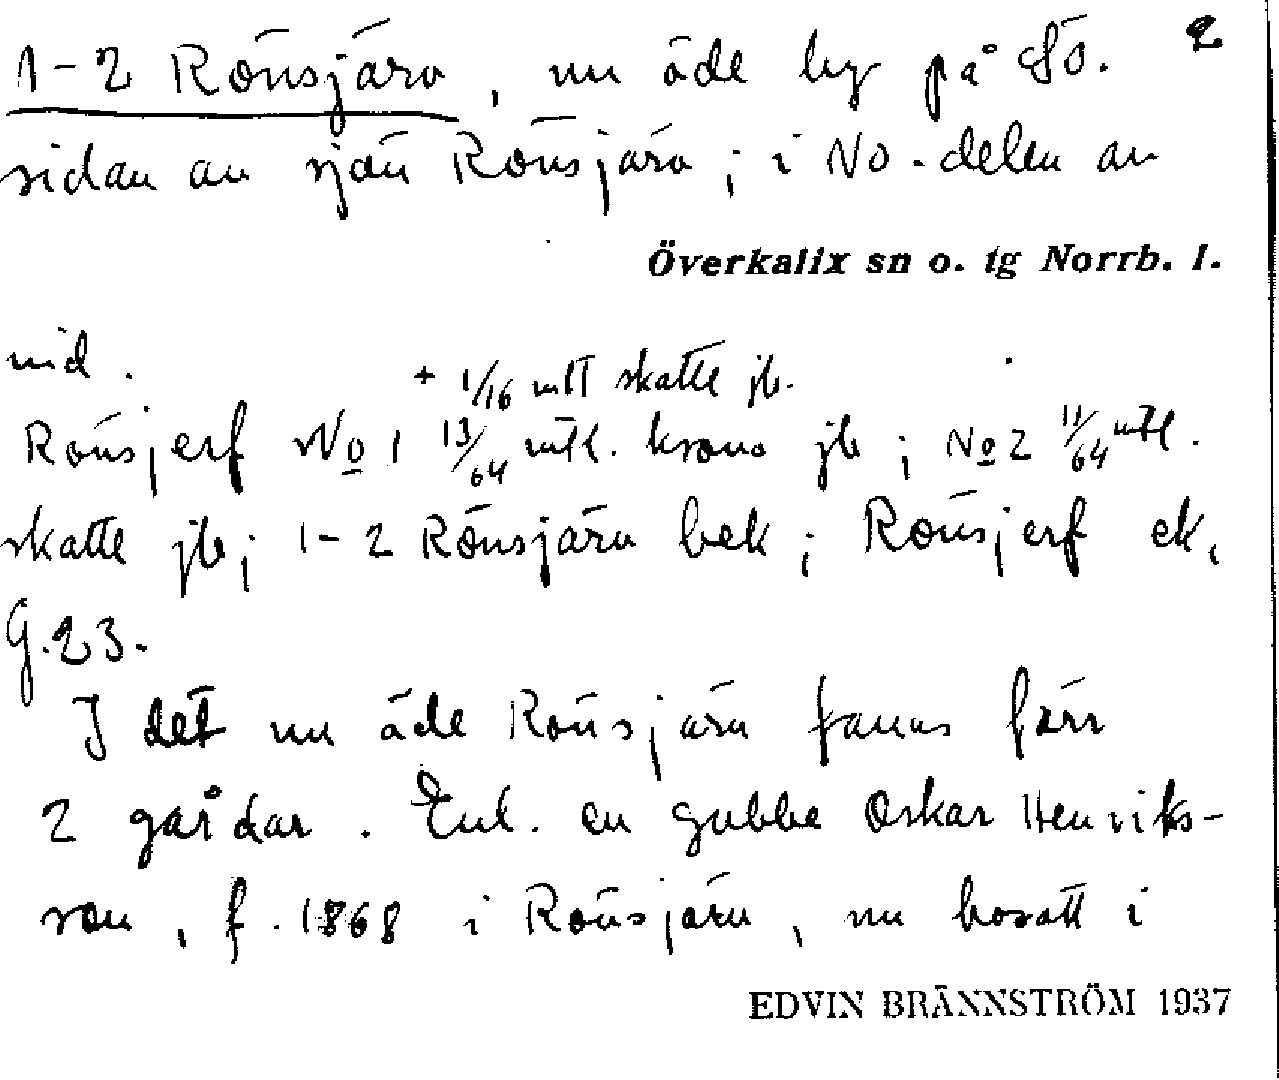 2
1-2 Rönsjärv, nu öde by på SÖ.
sidan av sjön Rönsjärv; i NO-delen av
Överkalix sn o. tg Norrb. l.
vid.
+ 1/16 mtl skatte jb.
Rönsjerf No 1 13/64 mtl. krono jb; No 2 11/64 mtl.
skatte jb; 1-2 Rönsjärv bek; Rönsjerf ek,
G.23.
I det nu öde Rönsjärv fanns förr
2 gårdar. Enl. en gubbe Oskar Henriks-
son, f. 1868 i Rönsjärv, nu bosatt i
EDVIN BRÄNNSTRÖM 1937